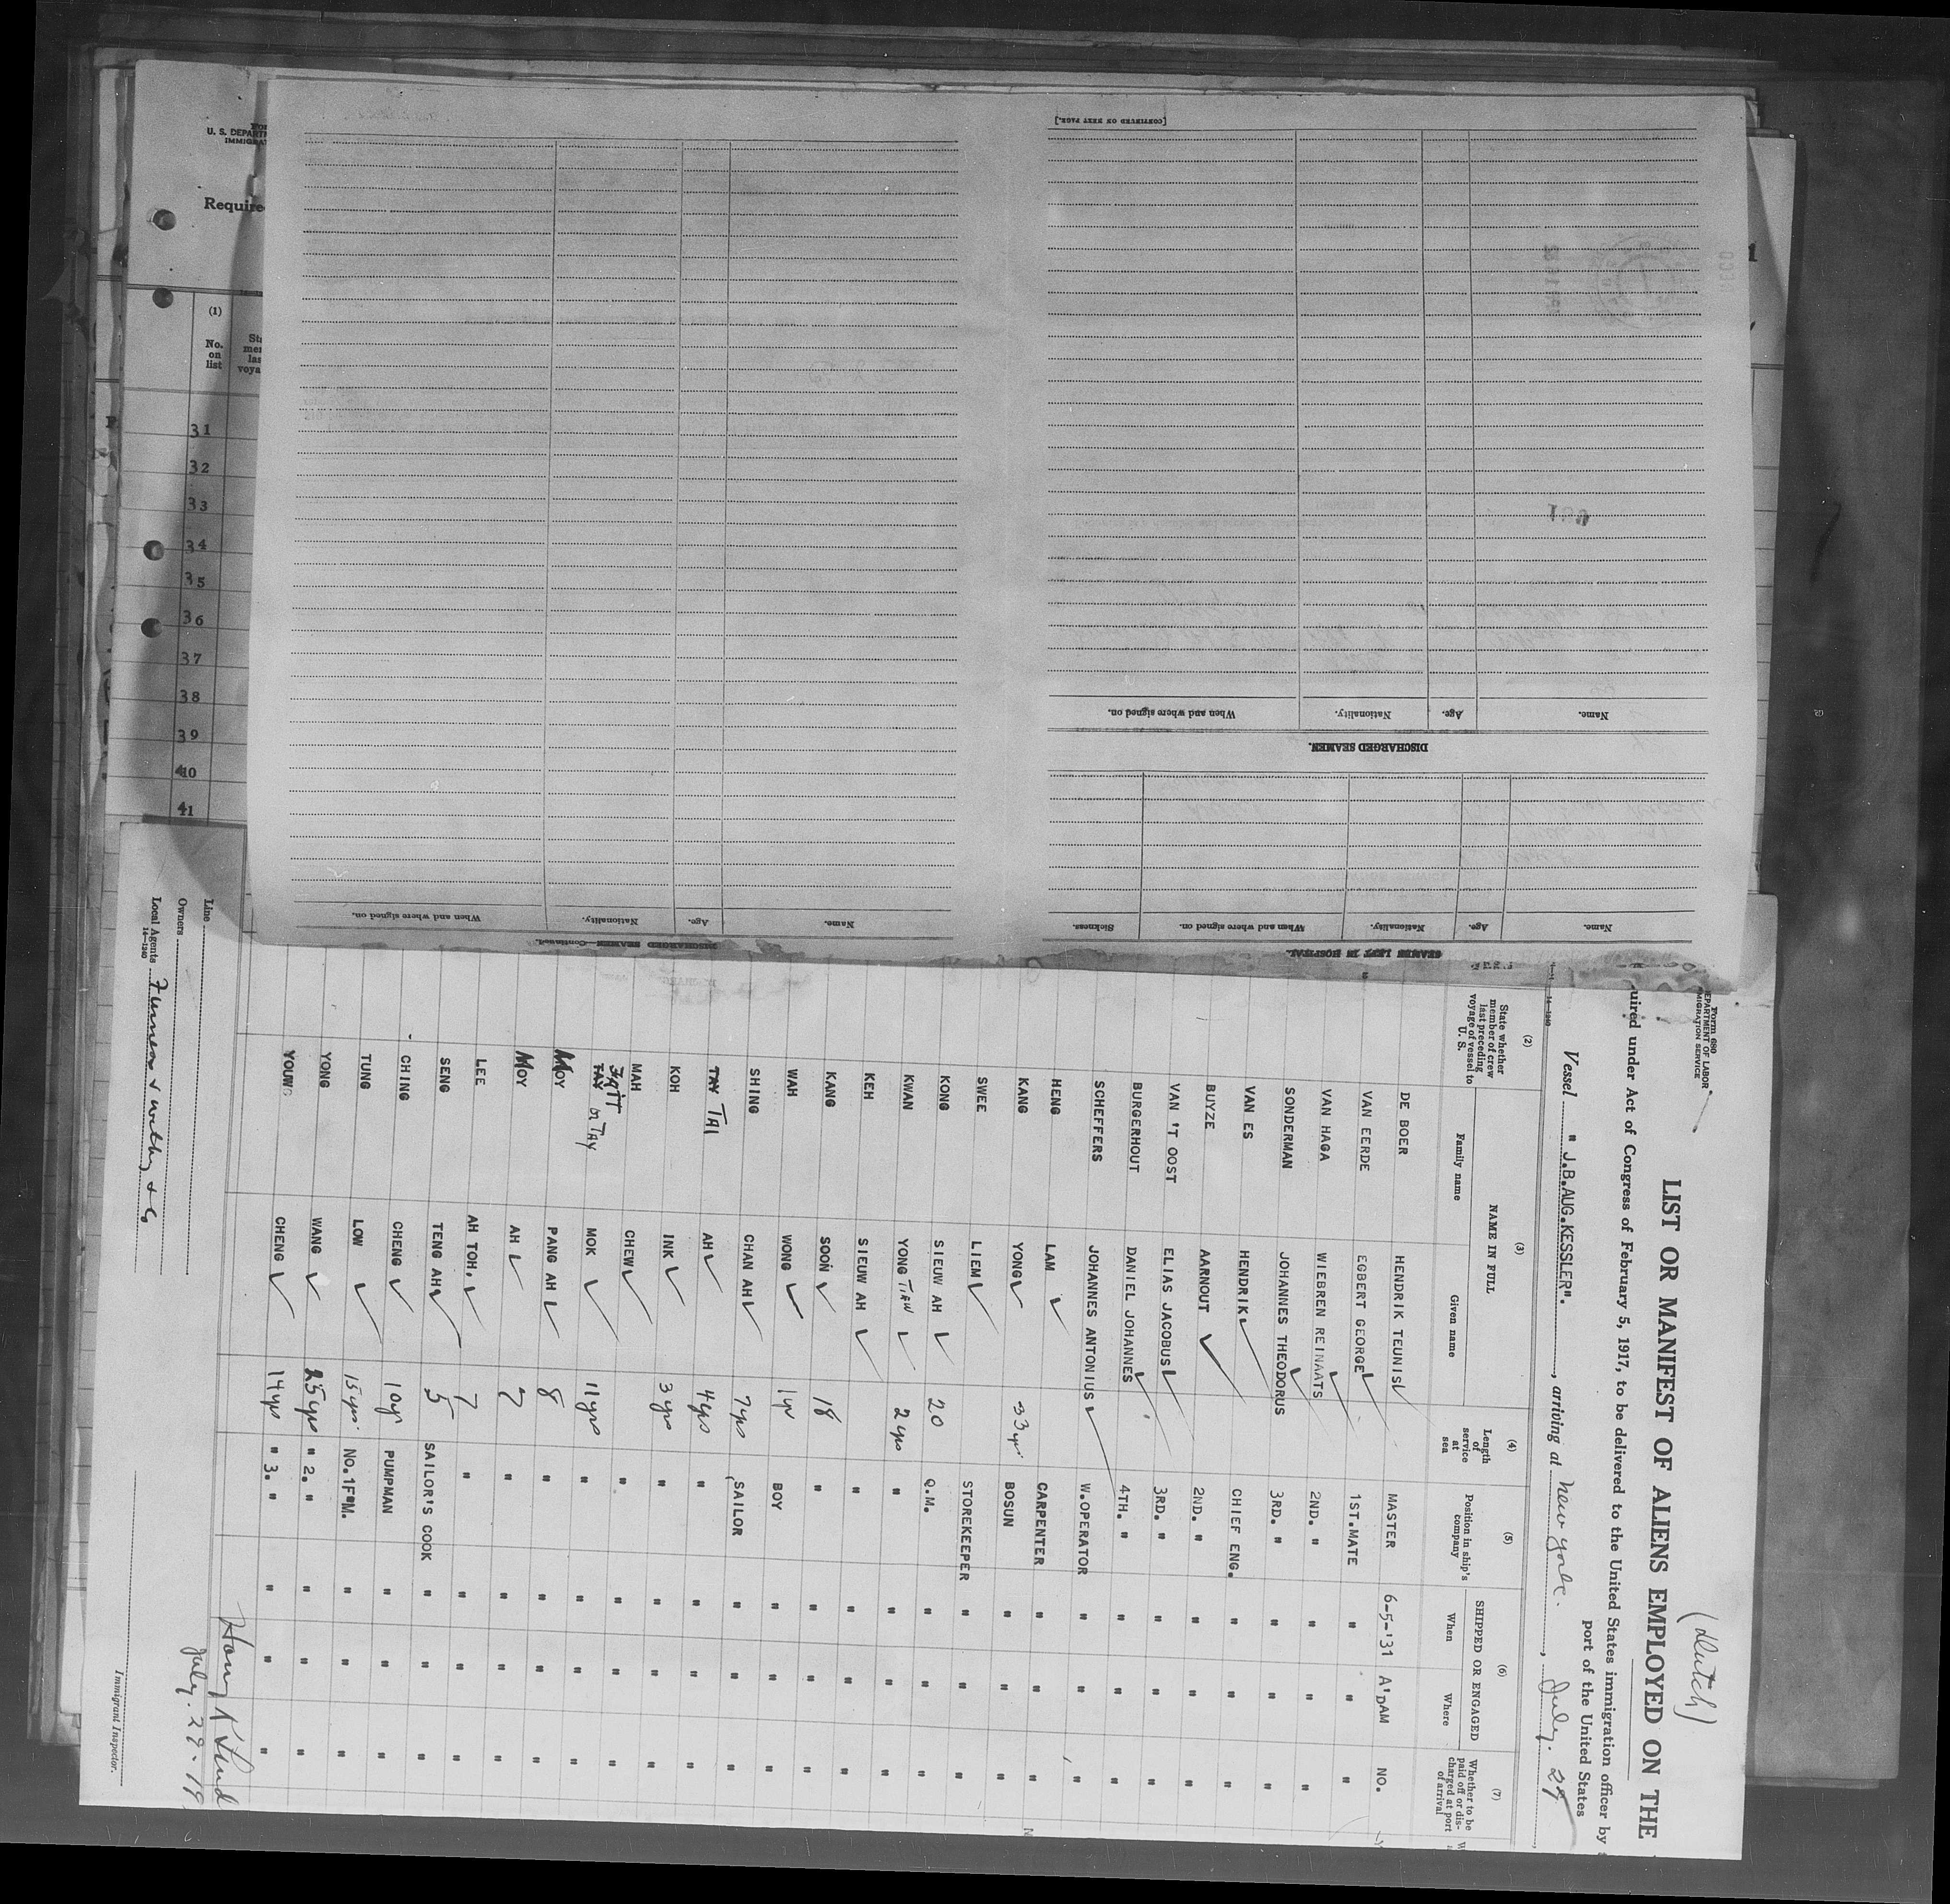 Form 680
DEPARTMENT OF LABOR
IMMIGRATION SERVICE
(Dutch)
LIST OR MANIFEST OF ALIENS EMPLOYED ON THE
uired under Act of Congress of February 5, 1917, to be delivered to the United States immigration officer by
port of the United States
Vessel " J.B.AUG.KESSLER". , arriving at New York. , July. 27
(2) (3) (4) (5) (6) (7)
State whether member of crew last preceding voyage of vessel to U. S.
NAME IN FULL
Family name Given name
Length of service at sea
Position in ship's company
SHIPPED OR ENGAGED
When Where
Whether to be paid off or discharged at port of arrival
DE BOER HENDRIK TEUNIS MASTER 6-5-'31 A'DAM NO.
VAN EERDE EGBERT GEORGE 1ST.MATE " " "
VAN HAGA WIEBREN REINAATS 2ND. " " " "
SONDERMAN JOHANNES THEODORUS 3RD. " " " "
VAN ES HENDRIK. CHIEF ENG. " " "
BUYZE AARNOUT 2ND. " " " "
VAN 'T OOST ELIAS JACOBUS 3RD. " " " "
BURGERHOUT DANIEL JOHANNES 4TH. " " " "
SCHEFFERS JOHANNES ANTONIUS W.OPERATOR " " "
HENG LAM CARPENTER " " "
KANG YONG 33 yr BOSUN " " "
SWEE LIEM STOREKEEPER " " "
KONG SIEUW AH 20 Q.M. " " "
KWAN YONG TIEW 2 yrs " " " "
KEH SIEUW AH " " " "
KANG SOON 18 " " " "
WAH WONG 1 yr BOY " " "
SHING CHAN AH 7 yrs SAILOR " " "
TAY TAI AH 4 yrs " " " "
KOH INK 3 yrs " " " "
MAH CHEW " " " "
TAY or TAY MOK 11 yrs " " " "
MOY PANG AH 8 " " " "
MOY AH 7 " " " "
LEE AH TOH. 7 " " " "
SENG TENG AH 5 SAILOR'S COOK " " "
CHING CHENG 10 yr PUMPMAN " " "
TUNG LOW 15 yrs. NO.1F"M. " " "
YONG WANG 25 yrs " 2. " " " "
YOUNG CHENG 14 yrs " 3. " " " "
Line
Owners
Local Agents Furness & Withy & Co
14—1240
July. 27. 19
Immigrant Inspector.
SEAMEN LEFT IN HOSPITAL.
Name. Age. Nationality. When and where signed on. Sickness.
DISCHARGED SEAMEN.
Name. Age. Nationality. When and where signed on.
[CONTINUED ON NEXT PAGE.]
DISCHARGED SEAMEN—Continued.
Name. Age. Nationality. When and where signed on.
U. S. DEPART
IMMIGRA
Require
(1)
No. on list
31
32
33
34
35
36
37
38
39
40
41